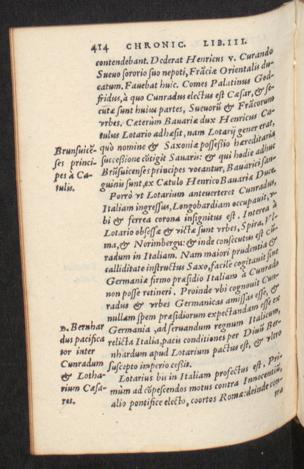 414 CHRONIC. LIB. III.
contendebant. Dederat Henricus v. Curando
Sueuo sororio suo nepoti, Frāciæ Orientalis du-
catum. Fauebat huic. Comes Palatinus God-
fridus, à quo Cunradus electus est Cæsar, & se-
cutæ sunt huius partes, Sueuorū & Frācorum
vrbes. Cæterùm Bauariæ dux Henricus Ca-
tulus Lotario adhæsit, nam Lotarij gener erat,
quò nomine & Saxoniæ possessio hæreditaria
successione cōtigit Bauaris: & qui hodie adhuc
Brūsuicenses principes vocantur, Bauarici san-
guinis sunt, ex Catulo Henrico Bauariæ Duce.
Brunsuicē-
ses princi-
pes à Ca-
tulis.
Porrò vt Lotarium anteuerteret Cunradus,
Italiam ingressus, Longobardiam occupauit, v-
bi & ferrea corona insignitus est. Interea à
Lotario obsessæ & victæ sunt vrbes, Spira,
ma, & Norimberga: & inde consecutus est Cū-
radum in Italiam. Nam maiori prudentia &
calliditate instructus Saxo, facilè cogitauit sine
Germania firmo præsidio Italiam à Cunrado
non posse retineri. Proinde vbi cognouit Cun-
radus & vrbes Germanicas amissas esse, &
nullam spem præsidiorum expectandam esse ex
Germania, ad seruandum regnum Italicum,
relicta Italia, paci conditiones per Diuū Ber-
nhardum apud Lotarium pactus est, & vltro
suscepto imperio cessit.
D. Bernhar
dus pacifica
tor inter
Cunradum
& Lotha-
rium Cæsa-
res.
Lotarius bis in Italiam profectus est. Pri-
mùm ad cōpescendos motus contra Innocentiū,
alio pontifice electo, coortos Romæ: deinde con-